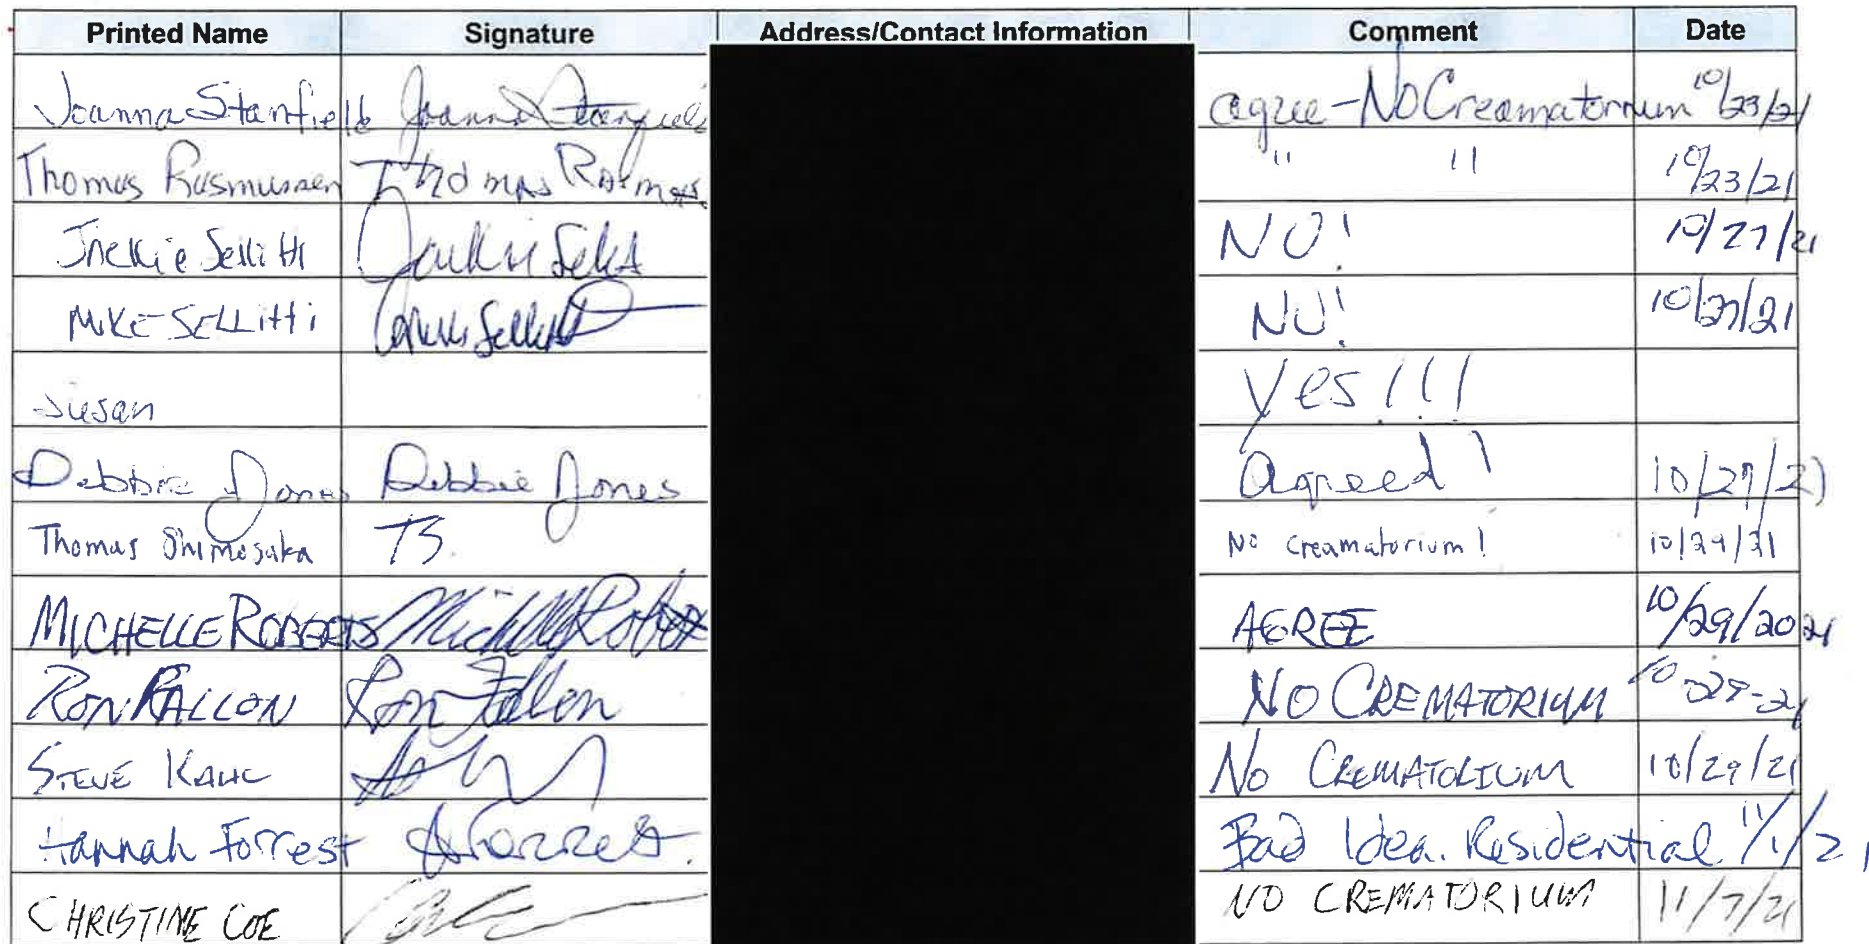 Printed Name Signature Address/Contact Information Comment Date
Joanna Stanfield Joanna Stanfield agree - No Creamatorium 10/23/21
Thomas Rasmussen Thomas " " 10/23/21
Jackie Sellitti Jackie NO! 10/27/21
MIKE SELLitti NO! 10/27/21
Susan Yes!!!
Debbie Jones Debbie Jones Agreed! 10/27/21
Thomas Shimosaka TS. No creamatorium! 10/29/21
MICHELLE ROBERTS Michelle AGREE 10/29/2021
RON FALLON Ron Fallon NO CREMATORIUM 10-29-21
STEVE No CREMATORIUM 10/29/21
Hannah Forrest Bad Idea. Residential 11/1/21
CHRISTINE COE NO CREMATORIUM 11/7/21